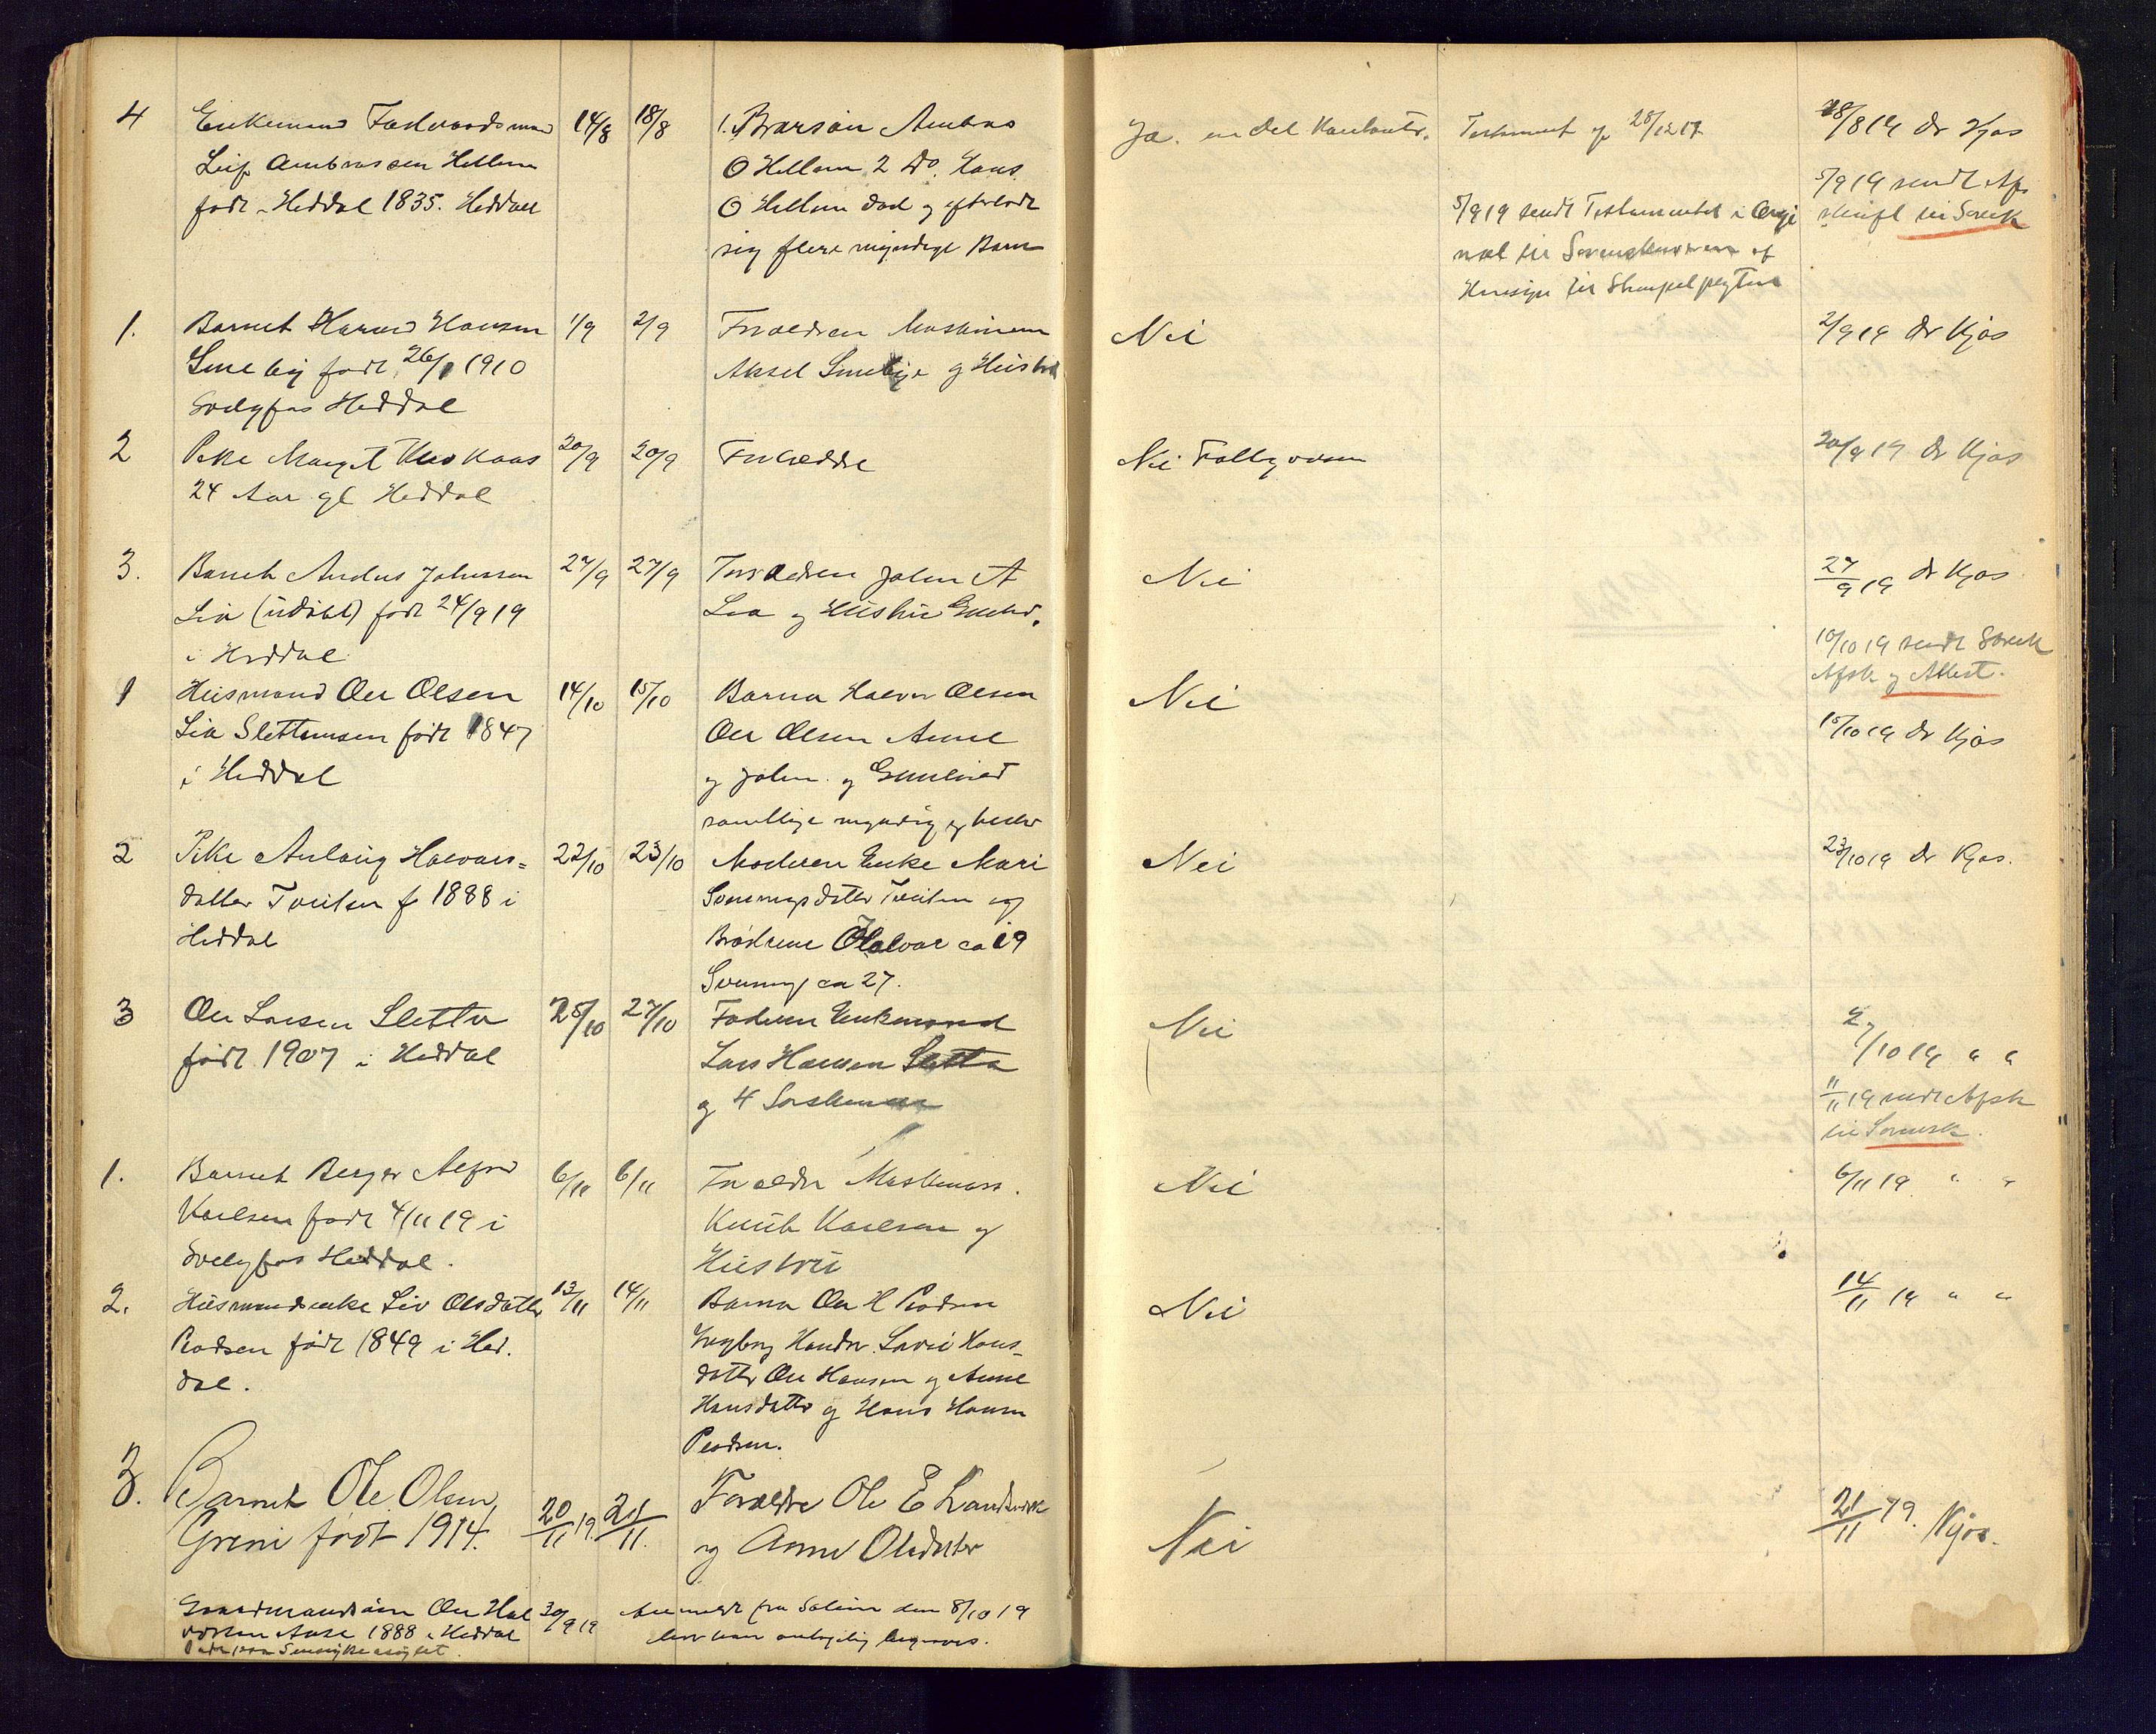 4
Enkemand Føderaadsmand
Leif Ambrossen Hellem
født i Heddal 1835. Heddal
14/8
18/8
1. Brorsøn Ambros
O Hellem 2 Do. Hans
O Hellem død og efterladt
sig flere myndige Barn
Ja. en del Kontanter.
Testament af 28/12 17
5/9 19 sendt Testamentet i Origi
nal til Sorenskriveren af
Hensyn til Stempelpligten
18/8 19 Dr Kjos
5/9 19 sendt Af
skrift til Sorensk
1.
Barnet Harald Hansen
Smeby født 26/1 1910
Svelgfos Heddal
1/9
2/9
Forældren Maskinem
Aksel Smebye og Hustru
Nei
2/9 19 Dr Kjos
2
Pike Marget
24 Aar gl Heddal
20/9
20/9
Forældre
Nei Fattigvæsen
20/9 19 Dr Kjos
3.
Barnet Andres Johnsen
Lia (udøbt) født 24/9 19
i Heddal
27/9
27/9
Forældren John A
Lia og Hustru
Nei
27/9 19 Dr Kjos
10/10 19 sendt Sorensk
Afsk og Attest.
1
Husmand Ole Olsen
Lia Slettemoen født 1847
i Heddal
14/10
15/10
Barna Halvor Olsen
Ole Olsen Anne
og John og Gunhild
samtlige myndig
Nei
15/10 19 Dr Kjos
2
Pike Anlaug Halvors=
datter Tveiten f 1888 i
Heddal
22/10
23/10
Moderen Enke Mari
Sveinungsdatter Tveiten og
Brødrene Halvor ca 19
Sveinung ca 27.
Nei
23/10 19 Dr Kjos.
3
Ole Larsen Sletta
født 1907 i Heddal
25/10
27/10
Faderen Enkemand
Lars Hansen Sletta
og 4 Søskende
Nei
27/10 19 " "
11/11 19 sendt Afsk
til Sorensk.
1.
Barnet Birger Alfred
Karlsen født 4/11 19 i
Svelgfos Heddal.
6/11
6/11
Forældre Maskinass.
Knut Karlsen og
Hustru
Nei
6/11 19 " "
2.
Husmandsenke Liv Olsdatter
Rodsen født 1849 i Hed.
dal.
13/11
14/11
Barna Ole H Rodsen
Ingborg Hansdr. Hans=
datter Ole Hansen og Anne
Hansdatter og Hans Hansen
Rodsen.
Nei
14/11 19 " "
3.
Barnet Ole Olsen,
Greni født 1914.
20/11 19.
21/11.
Forældre Ole E Landsverk
og Anne Olsdatter
Nei
21/11 19. Kjos.
Gaardmandsøn Ole Hal
vorsen Aase 1888 i Heddal
Døde paa Sindsykeasylet
30/9 19
Anmeldt fra Solum den 8/10 19
hvor han antagelig begraves.